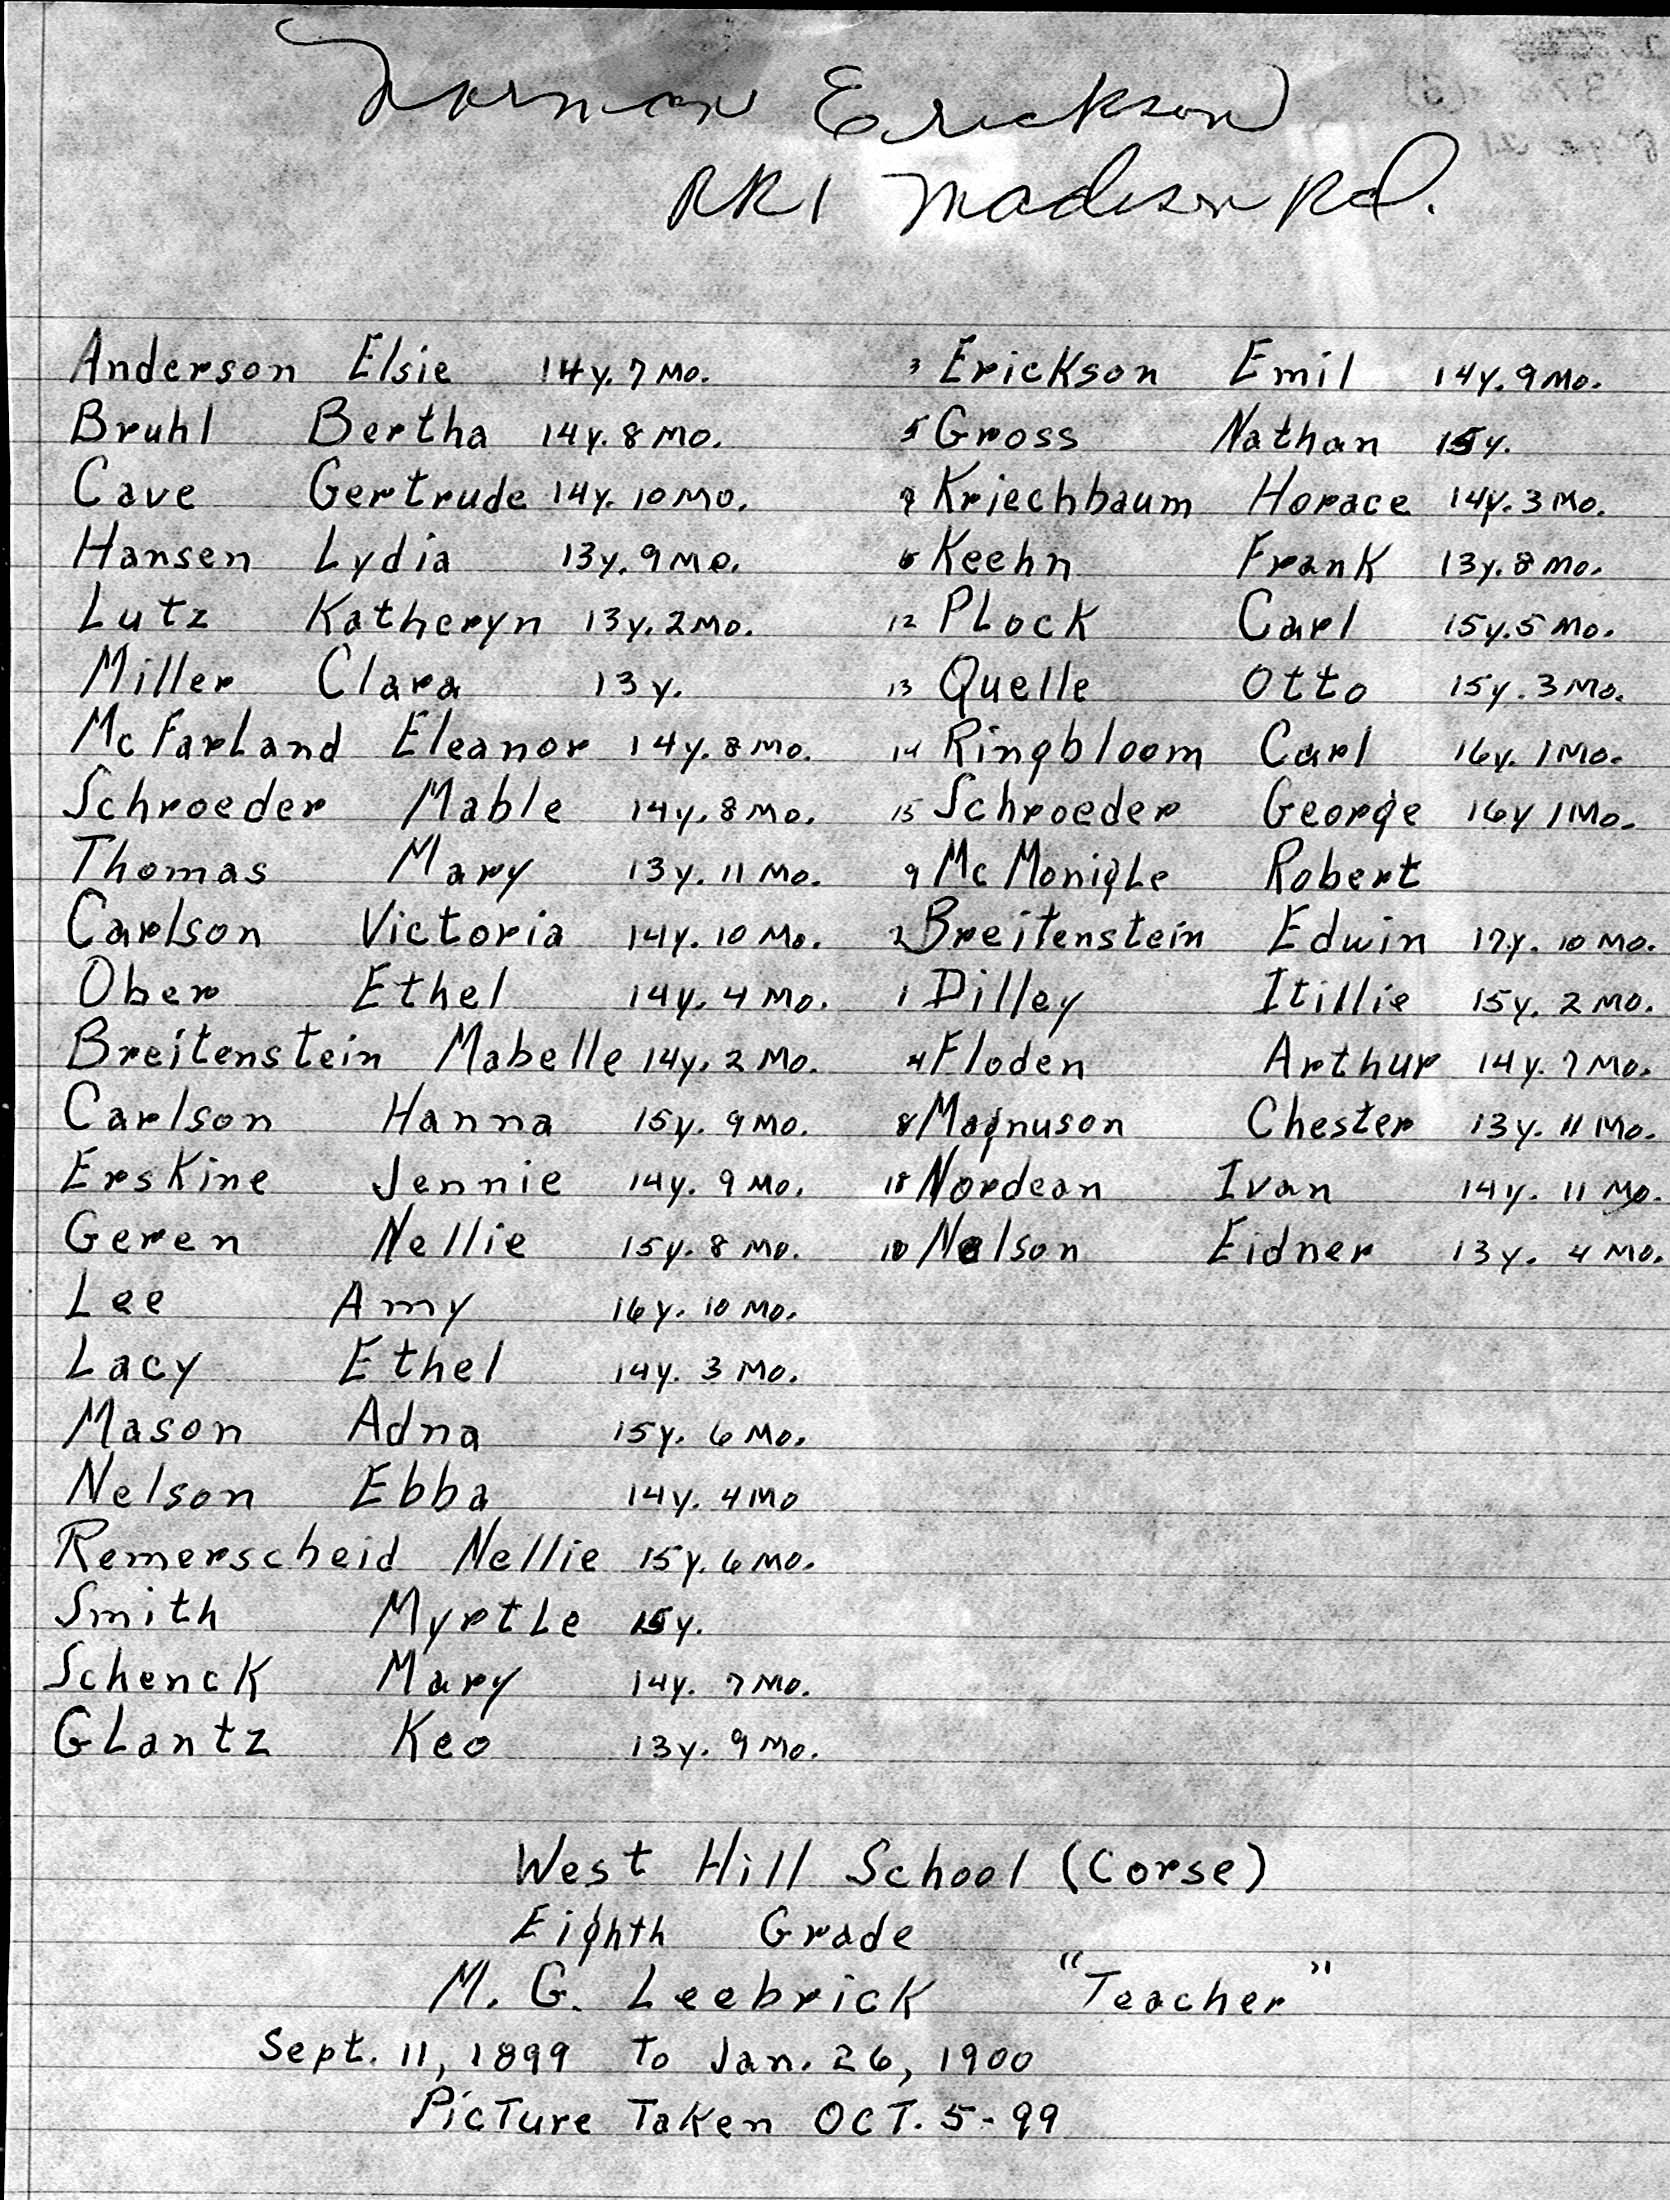 Norman Erickson
RR1 Madison Rd.
Anderson Elsie 14y. 7 Mo.
Bruhl Bertha 14y. 8 Mo.
Cave Gertrude 14y. 10 Mo.
Hansen Lydia 13y. 9 Mo.
Lutz Katheryn 13y. 2 Mo.
Miller Clara 13y.
McFarLand Eleanor 14y. 8 Mo.
Schroeder Mable 14y. 8 Mo.
Thomas Mary 13y. 11 Mo.
Carlson Victoria 14y. 10 Mo.
Ober Ethel 14y. 4 Mo.
Breitenstein Mabelle 14y. 2 Mo.
Carlson Hanna 15y. 9 Mo.
Erskine Jennie 14y. 9 Mo.
Geren Nellie 15y. 8 Mo.
Lee Amy 16y. 10 Mo.
Lacy Ethel 14y. 3 Mo.
Mason Adna 15y. 6 Mo.
Nelson Ebba 14y. 4 Mo
Remerscheid Nellie 15y. 6 Mo.
Smith MyrtLe 15y.
Schenck Mary 14y. 7 Mo.
GLantz Keo 13y. 9 Mo.
3 Erickson Emil 14y. 9 Mo.
5 Gross Nathan 15y.
7 Kriechbaum Horace 14y. 3 Mo.
6 Keehn Frank 13y. 8 Mo.
12 PLock Carl 15y. 5 Mo.
13 Quelle Otto 15y. 3 Mo.
14 Ringbloom Carl 16y. 1 Mo.
15 Schroeder George 16y 1 Mo.
9 Mc MonigLe Robert
2 Breitenstein Edwin 17y. 10 Mo.
1 Dilley Itillie 15y. 2 Mo.
4 Floden Arthur 14y. 7 Mo.
8 Magnuson Chester 13y. 11 Mo.
Nordean Ivan 14y. 11 Mo.
10 Nelson Eidner 13y. 4 Mo.
West Hill School (Corse)
Eighth Grade
M. G. Leebrick "Teacher"
Sept. 11, 1899 To Jan. 26, 1900
Picture Taken OCT. 5-99